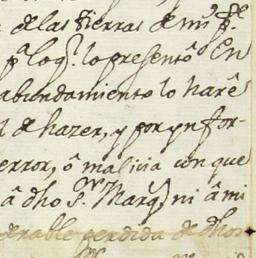 e de las tierras de mi pte
pr loq. lo presentô En
abundamiento lo harê
l de hazer, y por ynfor-
error, ô malicia con que
â dho Sr. Marq. ni â mi
derable perdida de dhos